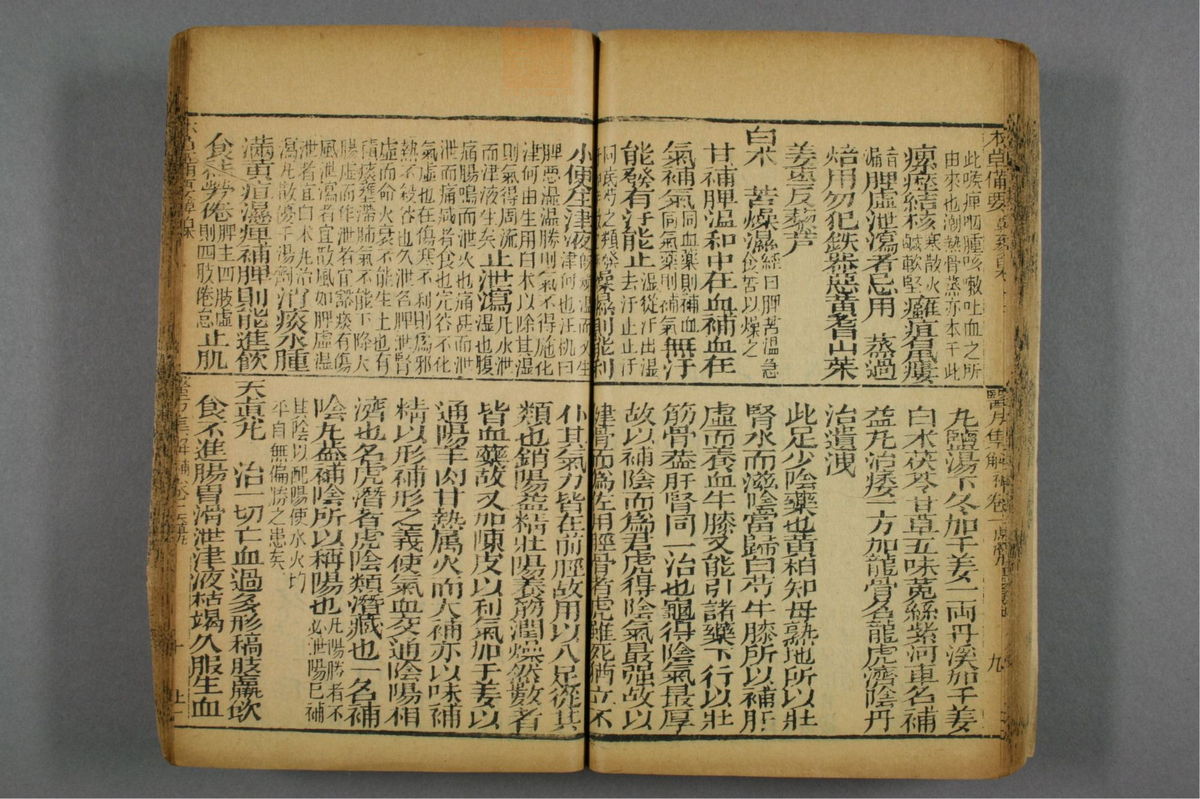 本草備要
此喉痺咽腫咳嗽吐血之所
由來也潮熱骨蒸亦本于此
瘰癧結核寒散火鹹軟堅癰疽鼠瘻
脾虛泄瀉者忌用 蒸過
焙用勿犯鉄器惡黃耆山茱
姜棗反藜芦
白朮 苦燥濕經曰脾苦濕急食苦以燥之
甘補脾温和中在血補血在
氣補氣同血藥則補血同氣藥則補氣無汗
能發有汗能止濕從汗出濕去汗止止汗
同芪芍之類燥濕則能利
小便生津液
脾惡濕濕勝則氣不得施化
津何由生用白朮以除其濕
則氣得周流
而津液生矣止泄瀉凡水泄濕也腹
痛腸鳴而泄火也痛甚而泄
泄而痛減者食也完谷不化
氣虛也在傷寒下利則為邪
熱不殺谷也久泄名脾泄腎
虛而命火衰不能生土也有
積痰壅滯肺氣不能下降大
腸虛而作泄者宜豁痰有傷
風泄瀉者宜散風如脾虛濕
泄者宜白朮凡治
瀉丸散勝于湯劑消痰水腫
滿黃疸濕痺補脾則能進飲
食祛勞倦脾主四肢虛則四肢倦怠止肌
醫方集解 補卷一 九
丸鹽湯下冬加干姜一両丹溪加干姜
白朮茯苓甘草五味菟絲紫河車名補
益丸治痿一方加龍骨名龍虎濟陰丹
治遺洩
此足少陰藥也黃柏知母熟地所以壯
腎水而滋陰當歸白芍牛膝所以補肝
虛而養血牛膝又能引諸藥下行以壯
筋骨蓋肝腎同一治也龜得陰氣最厚
故以補陰而為君虎得陰氣最强故以
健骨而為佐用脛骨者虎雖死猶立不
仆其氣力皆在前脛故用以入足從其
類也銷陽益精壯陽養筋潤燥然數者
皆血藥故又加陳皮以利氣加干姜以
通陽羊肉甘熱属火而大補亦以味補
精以形補形之義使氣血交通陰陽相
濟也名虎潛者虎陰類潛藏也一名補
陰丸蓋補陰所以称陽也凡陽勝者不必泄陽只補
其陰以配陽使水火均
平自無偏勝之患矣
天真丸 治一切亡血過多形稿肢羸飲
食不進腸胃滑泄津液枯竭久服生血